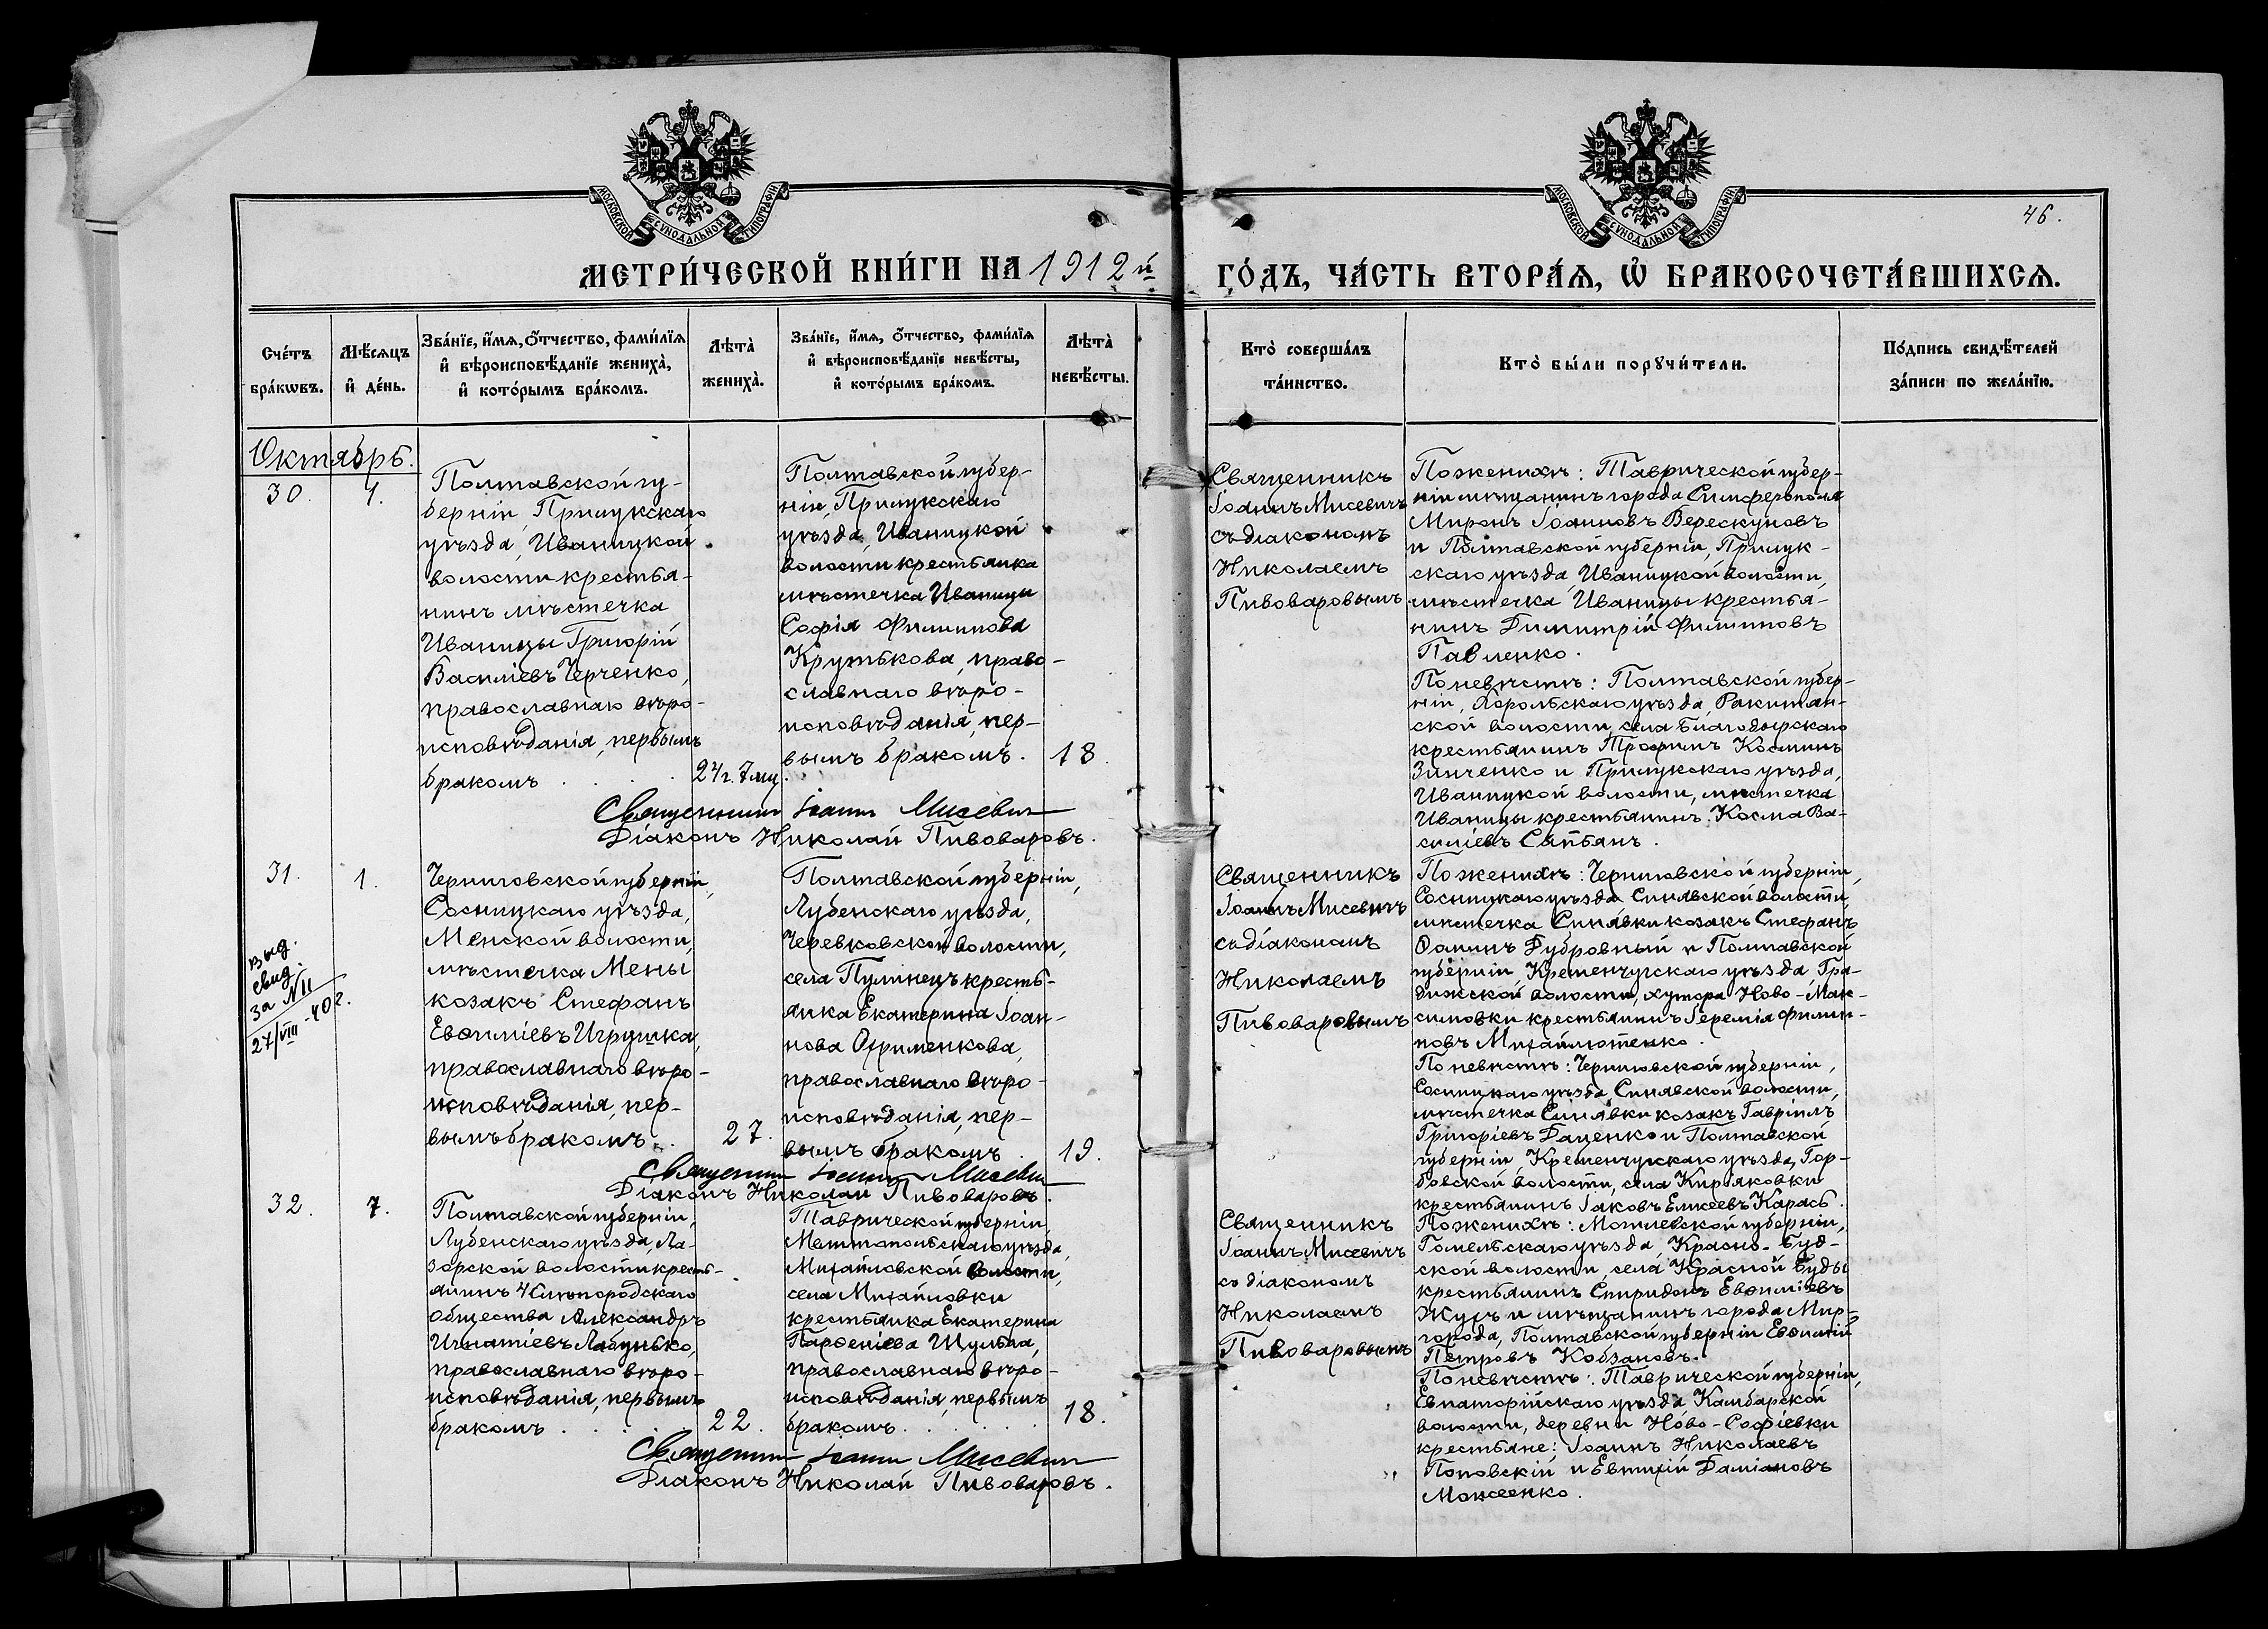 МОСКОВСКОЙ СѴНОДАЛЬНОЙ ТИПОГРАФІИ
МОСКОВСКОЙ СѴНОДАЛЬНОЙ ТИПОГРАФІИ
46.
МЕТРИ́ЧЕСКОЙ КНИ́ГИ НА 1912 й
ГО́ДЪ, ЧА́СТЬ ВТОРА́Ѧ, Ѡ҆ БРАКОСОЧЕТА́ВШИХСѦ.
Сче́тъ
бра́кѡвъ.
Мѣ́сѧцъ
и҆ де́нь.
Зва́нїе, и҆́мѧ, ѻ҆́тчество, фами́лїѧ
и҆ вѣроисповѣ́данїе жениха̀,
и҆ кото́рымъ бра́комъ.
Лѣ́та̀
жениха̀.
Зва́нїе, и҆́мѧ, ѻ҆́тчество, фами́лїѧ
и҆ вѣроисповѣ́данїе невѣ́сты,
и҆ кото́рымъ бра́комъ.
Лѣ́та̀
невѣ́сты.
Кто̀ соверша́лъ
та́инство.
Кто̀ бы́ли порꙋчи́тели.
По́дпись свидѣ́телей
за́писи по жела́нїю.
Октябрь.
30.
1.
Полтавской гу-
берніи Прилукскаго
уѣзда, Иваницкой
волости крестья-
нинъ мѣстечка
Иваницы Григорій
Василіевъ Черченко,
православнаго вѣро-
исповѣданія, первымъ
бракомъ
24 г. 7 мц.
Полтавской губер-
ніи, Прилукскаго
уѣзда, Иваницкой
волости крестьянка
мѣстечка Иваницы
Софія Филиппова
Крутькова, право-
славнаго вѣро-
исповѣданія, пер-
вымъ бракомъ.
18.
Священникъ Іоаннъ Мисевичъ
Діаконъ Николай Пивоваровъ.
Священникъ
Іоаннъ Мисевичъ
съ діакономъ
Николаемъ
Пивоваровымъ
По женихѣ: Таврической губер-
ніи мѣщанинъ города Симферополя
Миронъ Іоанновъ Верескуновъ
и Полтавской губерніи, Прилук-
скаго уѣзда, Иваницкой волости,
мѣстечка Иваницы крестья-
нинъ Димитрій Филипповъ
Павленко.
По невѣстѣ: Полтавской губер-
ніи, Хорольскаго уѣзда, Рокитян-
ской волости, села
крестьянинъ Трофимъ Косминъ
Зинченко и Прилукскаго уѣзда,
Иваницкой волости, мѣстечка
Иваницы крестьянинъ Косма Ва-
силіевъ
31.
1.
выд.
свид.
за N 11
27/VIII - 40 г.
Черниговской губерніи,
Сосницкаго уѣзда,
Менской волости,
мѣстечка Мены
козакъ Стефанъ
Евѳиміевъ Игрушка,
православнаго вѣро-
исповѣданія, пер-
вымъ бракомъ.
27.
Полтавской губерніи,
Лубенскаго уѣзда,
Черевковской волости,
села Пулинецъ кресть-
янка Екатерина Іоан-
нова Охрименкова,
православнаго вѣро-
исповѣданія, пер-
вымъ бракомъ
19.
Священникъ Іоаннъ Мисевичъ
Діаконъ Николай Пивоваровъ.
Священникъ
Іоаннъ Мисевичъ
съ діакономъ
Николаемъ
Пивоваровымъ
По женихѣ: Черниговской губерніи,
Сосницкаго уѣзда Синявской волости,
мѣстечка Синявки козакъ Стефанъ
Ѳоминъ Дубровный и Полтавской
губерніи, Кременчугскаго уѣзда Гра-
дижской волости, хутора Ново-Мак-
симовки крестьянинъ Іеремія Филип-
повъ Михайлютенко.
По невѣстѣ: Черниговской губерніи,
Сосницкаго уѣзда, Синявской волости,
мѣстечка Синявки козакъ Гавріилъ
Григоріевъ Даценко и Полтавской
губерніи, Кременчугскаго уѣзда, Гор-
бовской волости, села Кириаковки
крестьянинъ Іаковъ Елисеевъ Карась.
32.
7.
Полтавской губерніи,
Лубенскаго уѣзда, Ла-
зорской волости кресть-
янинъ
общества Александръ
Игнатіевъ Лабунько,
православнаго вѣро-
исповѣданія, первымъ
бракомъ
22.
Таврической губерніи,
Мелитопольскаго уѣзда,
Михайловской волости,
села Михайловки
крестьянка Екатерина
Парѳеніева Шульга,
православнаго вѣро-
исповѣданія, первымъ
бракомъ.
18.
Священникъ Іоаннъ Мисевичъ
Діаконъ Николай Пивоваровъ.
Священникъ
Іоаннъ Мисевичъ
съ діакономъ
Николаемъ
Пивоваровымъ
По женихѣ: Могилевской губерніи,
Гомельскаго уѣзда, Красно-Буд-
ской волости, села Красной Буды
крестьянинъ Спиридонъ Евѳиміевъ
Жукъ и мѣщанинъ города Мир-
города, Полтавской губерніи Евѳимій
Петровъ Кобзановъ.
По невѣстѣ: Таврической губерніи,
Евпаторійскаго уѣзда, Камбарской
волости, деревни Ново-Софіевки
крестьяне: Іоаннъ Николаевъ
Поповскій и Евтихій Даміановъ
Моисеенко.